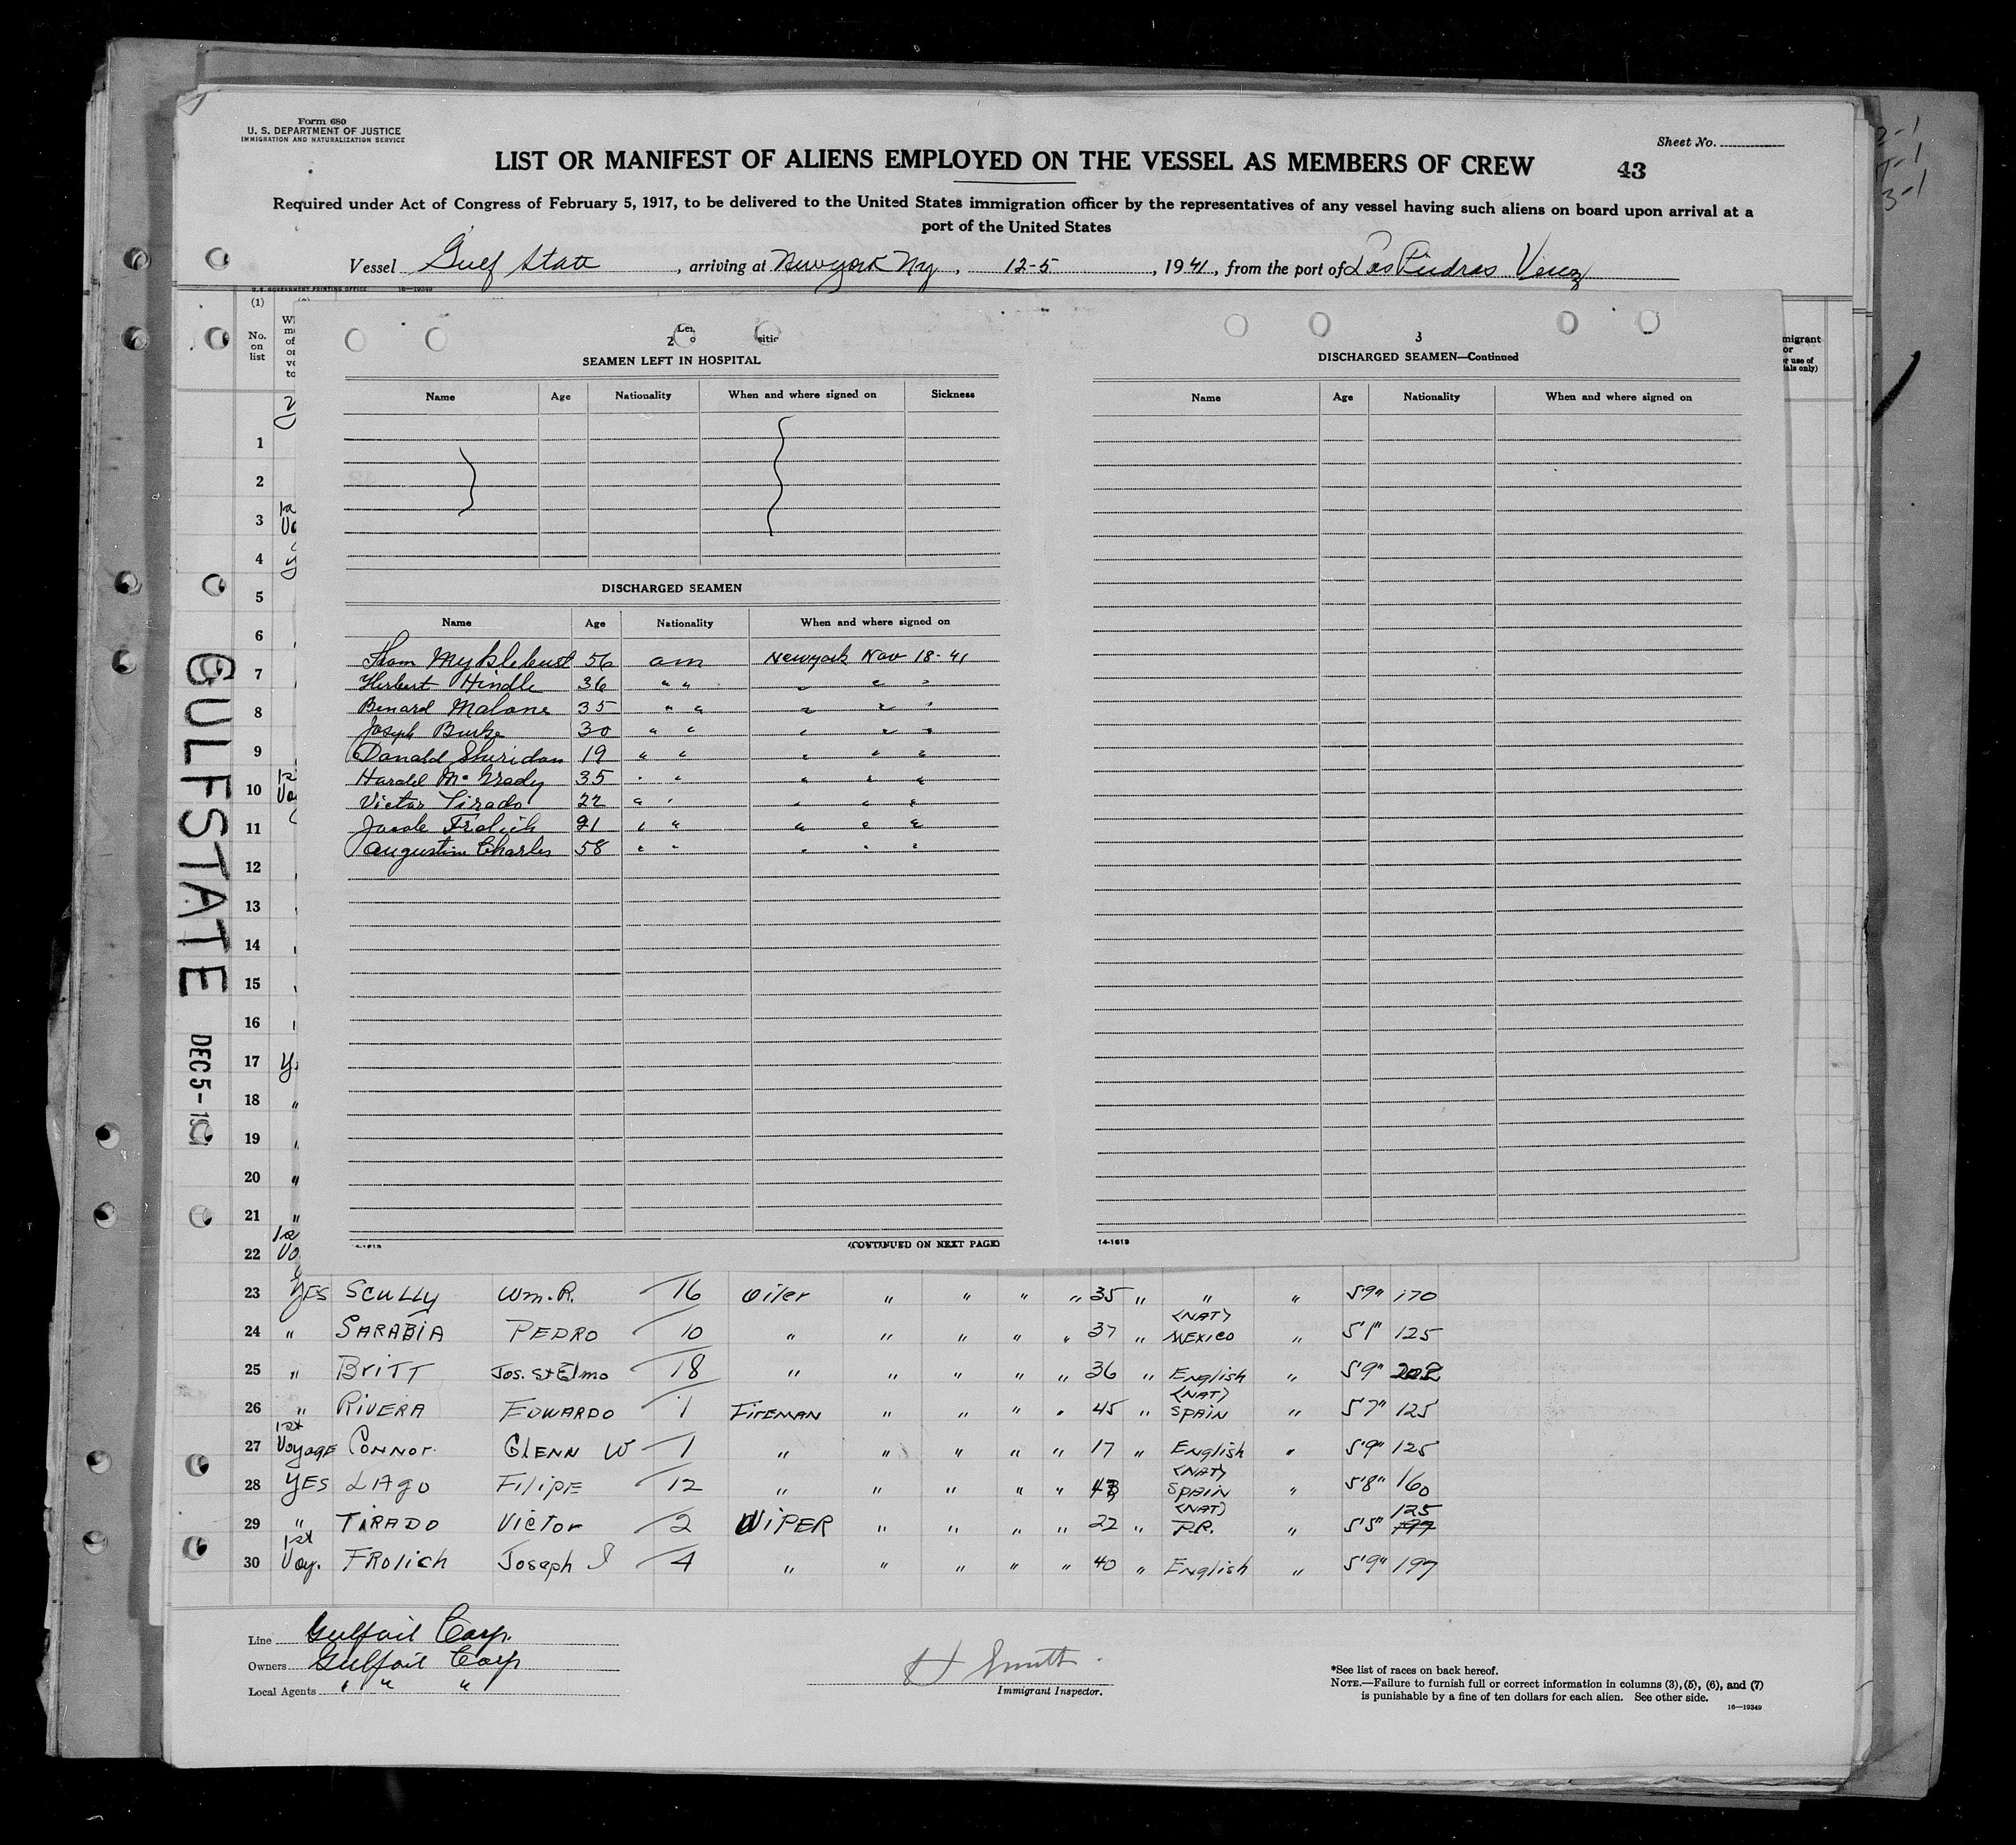 Form 680
U. S. DEPARTMENT OF JUSTICE
IMMIGRATION AND NATURALIZATION SERVICE
Sheet No.
LIST OR MANIFEST OF ALIENS EMPLOYED ON THE VESSEL AS MEMBERS OF CREW
43
Required under Act of Congress of February 5, 1917, to be delivered to the United States immigration officer by the representatives of any vessel having such aliens on board upon arrival at a
port of the United States
Vessel Gulf State, arriving at New york Ny, 12-5, 1941, from the port of Las Piedras Venez
U. S. GOVERNMENT PRINTING OFFICE 16—19349
(1)
No. on list
2
SEAMEN LEFT IN HOSPITAL
Name Age Nationality When and where signed on Sickness
DISCHARGED SEAMEN
Name Age Nationality When and where signed on
Myklebust 56 am Newyork Nov 18-41
Herbert Hindle 36 " " " " "
Benard Malone 35 " " " " "
Joseph Burke 30 " " " " "
Donald Sheridan 19 " " " " "
Harold Mc Grady 35 " " " " "
Victor Tirado 22 " " " " "
Frolich 21 " " " " "
Augustine Charles 58 " " " " "
(CONTINUED ON NEXT PAGE)
3
DISCHARGED SEAMEN—Continued
Name Age Nationality When and where signed on
14-1613
1
2
3
4
5
6
7
8
9
10
11
12
13
14
15
16
17
18
19
20
21
22
GULFSTATE
DEC 5-
23 YES SCULLY Wm. R. 16 Oiler " " " " 35 " " " 5'9" 170
24 " SARABIA PEDRO 10 " " " " " 37 " (NAT) MEXICO " 5'1" 125
25 " BRITT Jos. St Elmo 18 " " " " " 36 " English " 5'9" 202
26 " RIVERA EDWARDO 1 FIREMAN " " " " 45 " (NAT) SPAIN " 5'7" 125
27 1st Voyage CONNOR GLENN W 1 " " " " " 17 " English " 5'9" 125
28 YES LAGO FILIPE 12 " " " " " 43 (NAT) SPAIN " 5'8" 160
29 " TIRADO Victor 2 WIPER " " " " 22 " (NAT) P.R. " 5'5" 125
30 1st Voy. FROLICH Joseph J 4 " " " " " 40 " English " 5'9" 197
Line Gulfoil Corp.
Owners Gulfoil Corp
Local Agents " " "
H Smith
Immigrant Inspector.
*See list of races on back hereof.
NOTE.—Failure to furnish full or correct information in columns (3), (5), (6), and (7)
is punishable by a fine of ten dollars for each alien. See other side.
16—19349